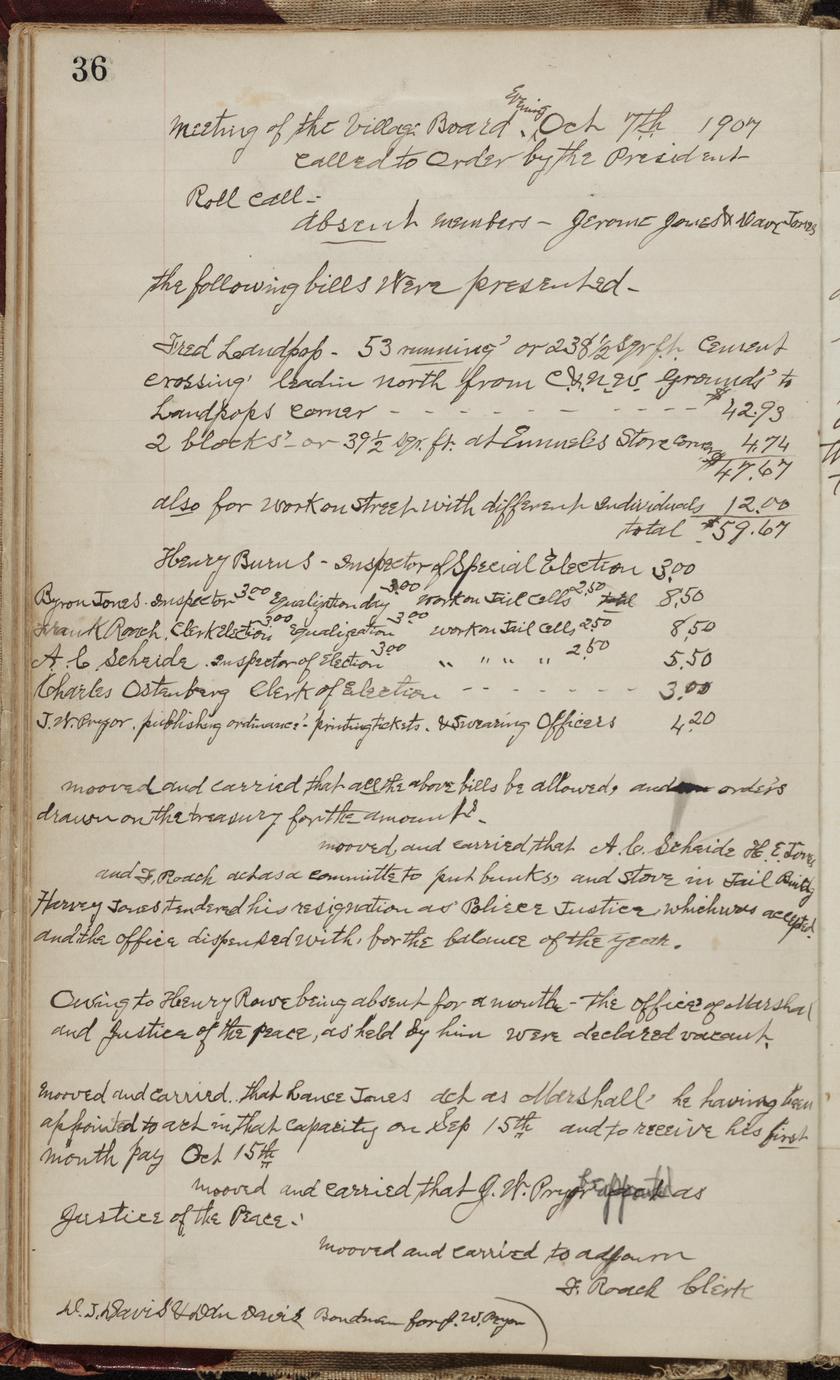 36
Meeting of the Village Board, Evening Oct 7th 1907
called to order by the President
Roll call -
absent members - Jerome Jones & Jones
the following bills were presented -
Fred Landpop - 53 running' or 238 1/2 sqr. ft. cement
crossing' leadin north from C. & N. W. Grounds' to
Landpops corner - - - - - - - - - $42.93
2 blocks' - or 39 1/2 sqr. ft. at Emmeles Store corner 4.74
$47.67
also for work on street with different individuals 12.00
total $59.67
Henry Burns - Inspector of Special Election 3.00
Byron Jones. Inspector 3.00 Equalization day 3.00 work on Jail cells 2.50 total 8.50
Frank Roach. Clerk Election 3.00 Equalization 3.00 work on Jail cells 2.50 8.50
A. C. Scheide. Inspector of Election 3.00 " " " " 2.50 5.50
Charles Ostenberg Clerk of Election - - - - - - - 3.00
J. W. Pryor. publishing ordinance' - printing tickets. & Swearing Officers 4.20
mooved and carried that all the above bills be allowed, and orders
drawn on the treasury for the amounts'. -
mooved, and carried, that A. C. Scheide H. E. Jones
and F. Roach act as a committe to put bunks, and stove in Jail
Harvey Jones tendered his resignation as Poliece Justice, which was accepted.
and the office dispensed with, for the balance of the year.
Owing to Henry Rowe being absent for a month - the office of Marshal
and Justice of the peace, as held by him were declared vacant.
mooved and carried. that Lance Jones act as Marshall' he having been
appointed to act in that capacity on Sep 15th and to receive his first
month pay Oct 15th
mooved and carried that J. W. Pryor as
Justice of the Peace.
mooved and carried to adjourn
F. Roach Clerk
D. J. Davis & Davis Bondman for J. W. Pryor